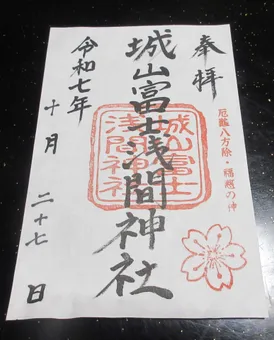 奉拝
厄難八方除・福照の神
城山富士浅間神社
城山富士
浅間神社
令和七年
十月
二十七日